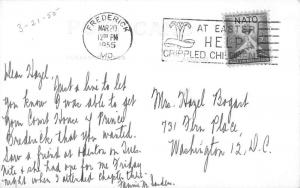 3-21-55
FREDERICK
MAR 20
12 30 PM
1955
MD.
AT EASTER
HELP
CRIPPLED CHILDREN
NATO
Dear Hazel,
Just a line to let
you know I was able to get
your Court House & Prince
Frederick that you wanted.
Saw a friend at Denton on Tues.
Nite & she had one for me Friday
night when I attended chapter there.
Mrs. Hazel Bogart
731 Fern Place,
Washington 12, D.C.